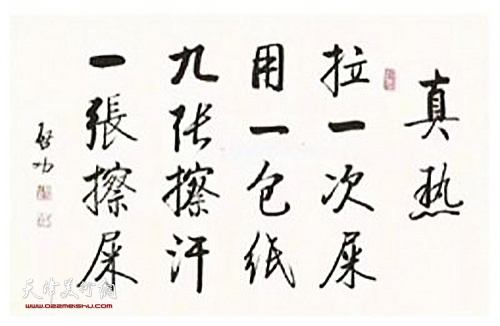 真热
拉一次屎
用一包纸
九张擦汗
一張擦屎
启功
天津美术网
www.022meishu.com